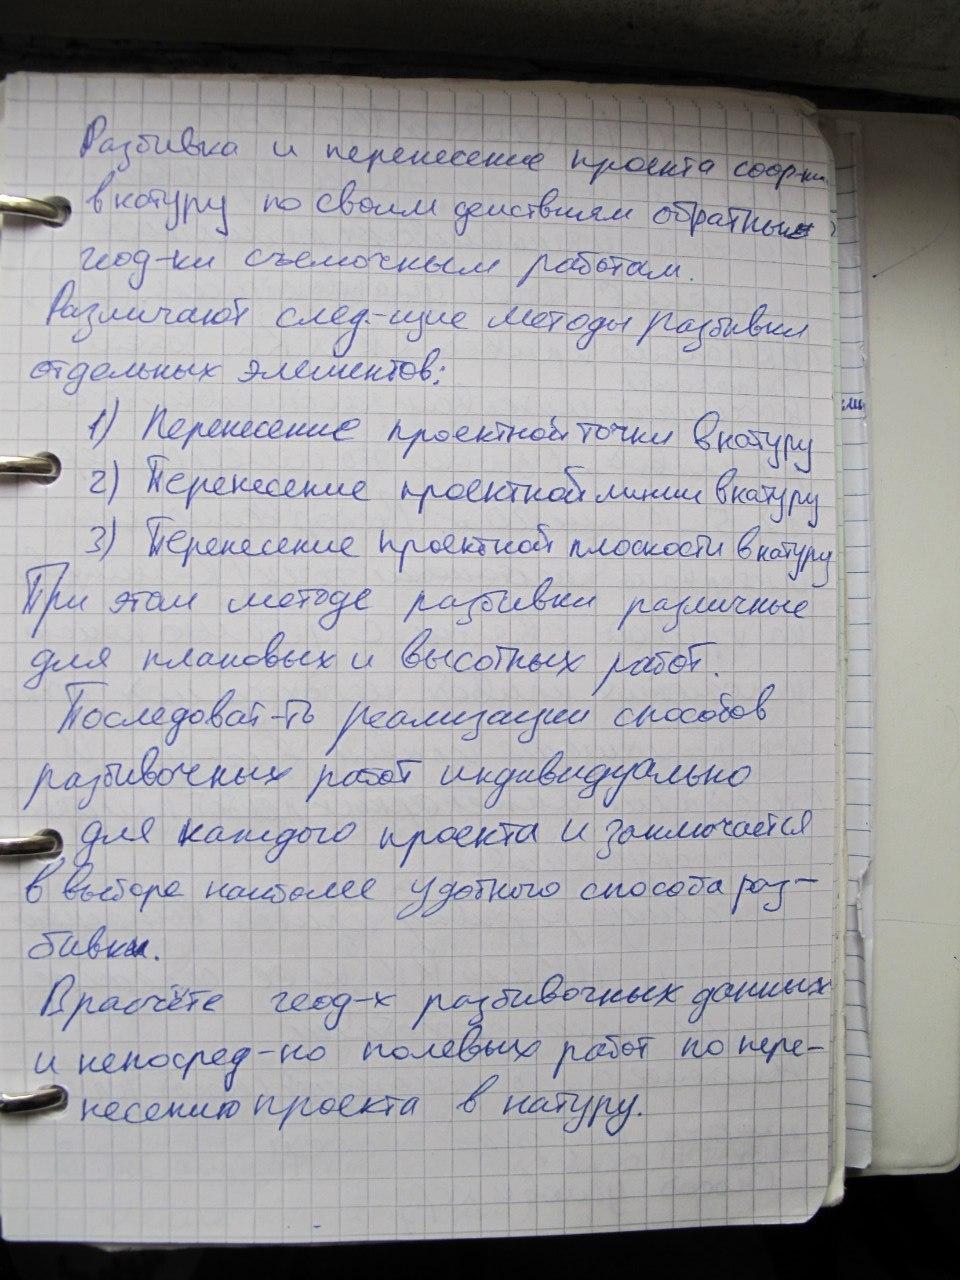 Разбивка и перенесение проекта соор-ни
в натуру по своим действиям обратные
геод-ки съемочным работам.
Различают след-щие методы разбивки
отдельных элементов:
1) Перенесение проектной точки в натуру
2) Перенесение проектной линии в натуру
3) Перенесение проектной плоскости в натуру
При этом методе разбивки различные
для плановых и высотных работ.
Последоват-ть реализации способов
разбивочных работ индивидуально
для каждого проекта и заключается
в выборе наиболее удобного способа раз-
бивки.
В расчёте геод-х разбивочных данных
и непосред-но полевых работ по пере-
несению проекта в натуру.